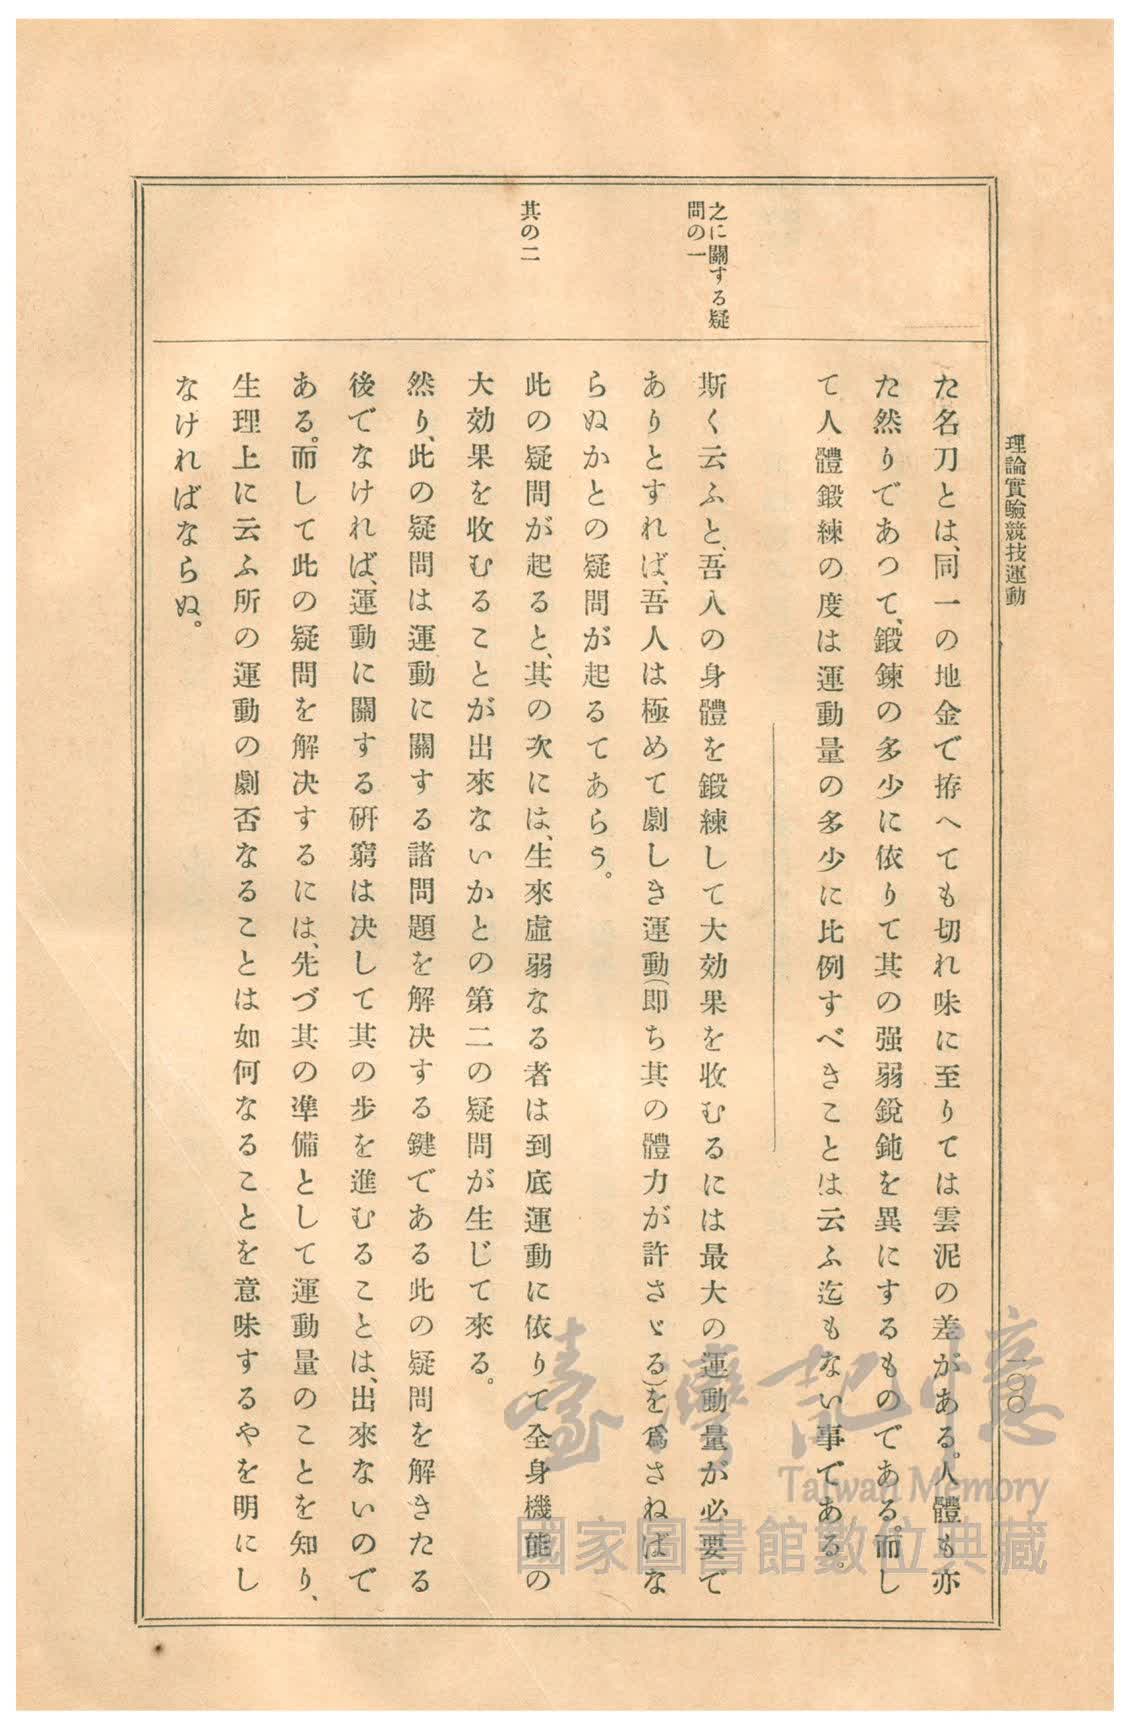 理論實驗競技運動
一〇〇
た名刀とは、同一の地金で拵へても切れ味に至りては雲泥の差がある。人體も亦
た然りであつて、鍛鍊の多少に依りて其の强弱銳鈍を異にするものである。而し
て人體鍛練の度は運動量の多少に比例すべきことは云ふ迄もない事である。
之に關する疑
問の一
斯く云ふと、吾人の身體を鍛練して大効果を收むるには最大の運動量が必要で
ありとすれば、吾人は極めて劇しき運動(即ち其の體力が許さゞる)を爲さねばな
らぬかとの疑問が起るてあらう。
其の二
此の疑問が起ると、其の次には、生來虛弱なる者は到底運動に依りて全身機能の
大効果を收むることが出來ないかとの第二の疑問が生じて來る。
然り、此の疑問は運動に關する諸問題を解决する鍵である此の疑問を解きたる
後でなければ、運動に關する硏窮は决して其の步を進むることは、出來ないので
ある。而して此の疑問を解决するには、先づ其の準備として運動量のことを知り、
生理上に云ふ所の運動の劇否なることは如何なることを意味するやを明にし
なければならぬ。
臺灣記憶
Taiwan Memory
國家圖書館數位典藏